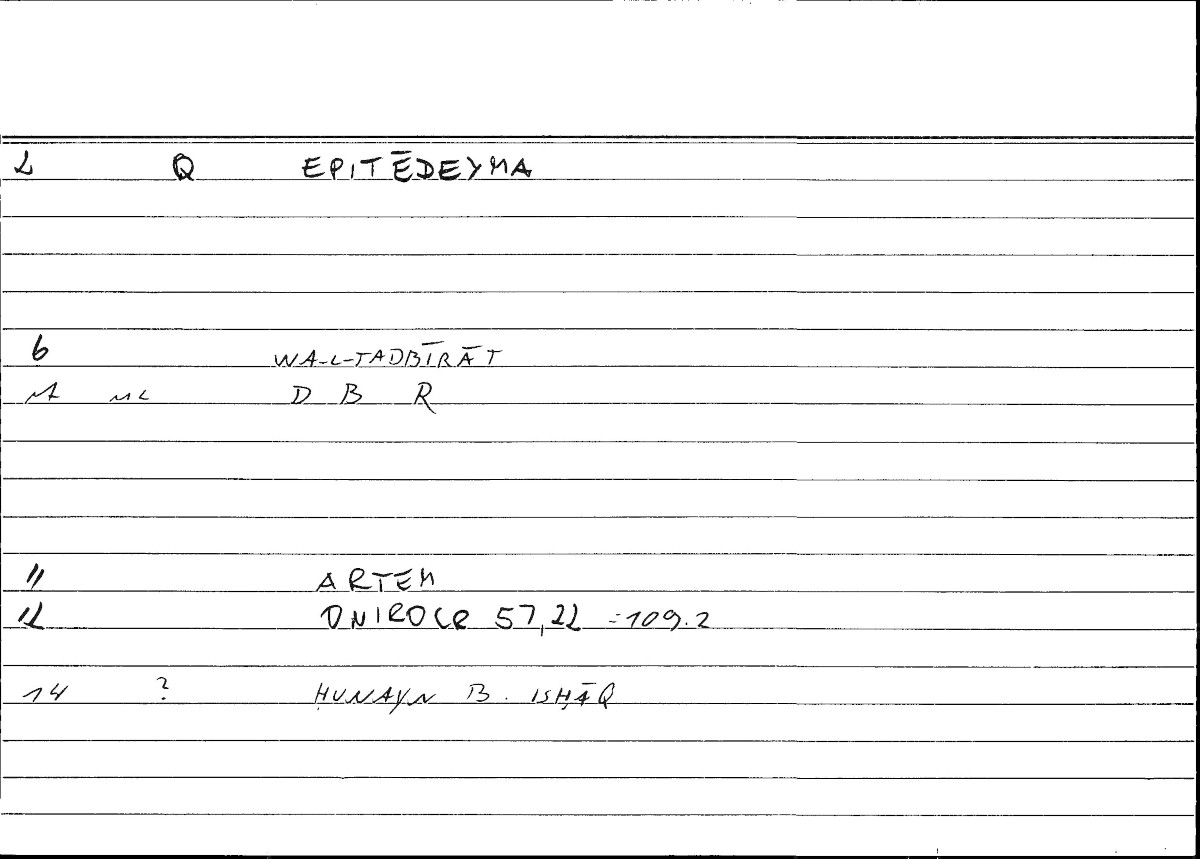 2 Q EPITĒDEYMA
6 WA-L-TADBĪRĀT
D B R
11 ARTEM
12 ONIROCR 57,22 =109.2
14 ? ḤUNAYN B. ISḤĀQ